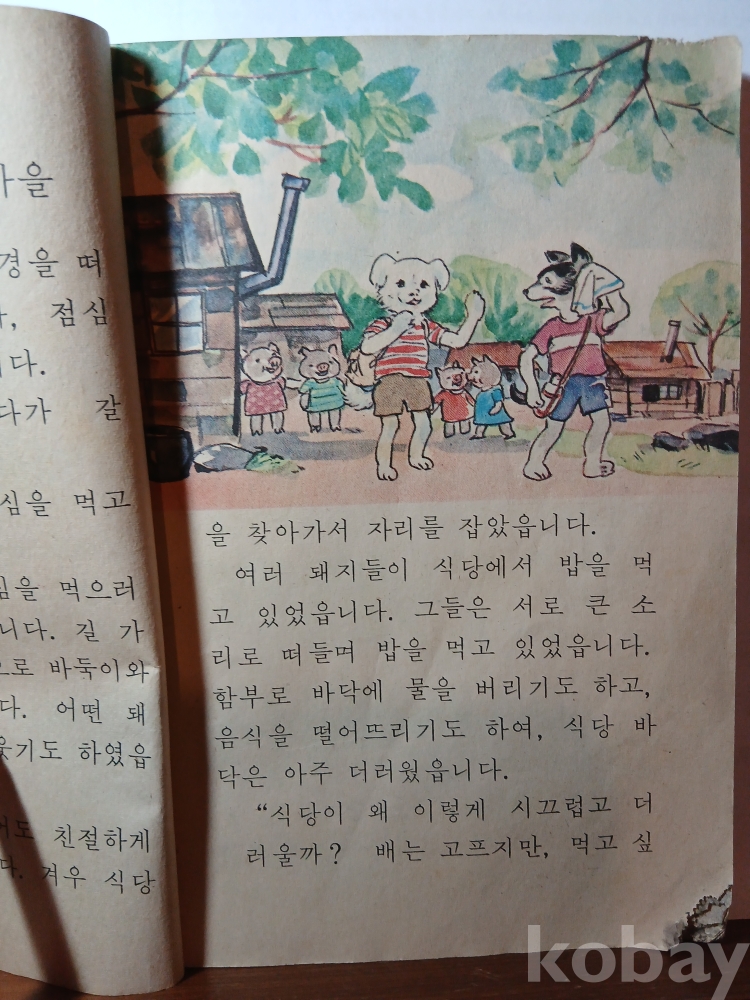 마을
경을 떠
, 점심
니다.
다가 갈
심을 먹고
심을 먹으러
니다. 길 가
으로 바둑이와
다. 어떤 돼
웃기도 하였읍
친절하게
다. 겨우 식당
을 찾아가서 자리를 잡았읍니다.
여러 돼지들이 식당에서 밥을 먹
고 있었읍니다. 그들은 서로 큰 소
리로 떠들며 밥을 먹고 있었읍니다.
함부로 바닥에 물을 버리기도 하고,
음식을 떨어뜨리기도 하여, 식당 바
닥은 아주 더러웠읍니다.
“식당이 왜 이렇게 시끄럽고 더
러울까? 배는 고프지만, 먹고 싶
kobay